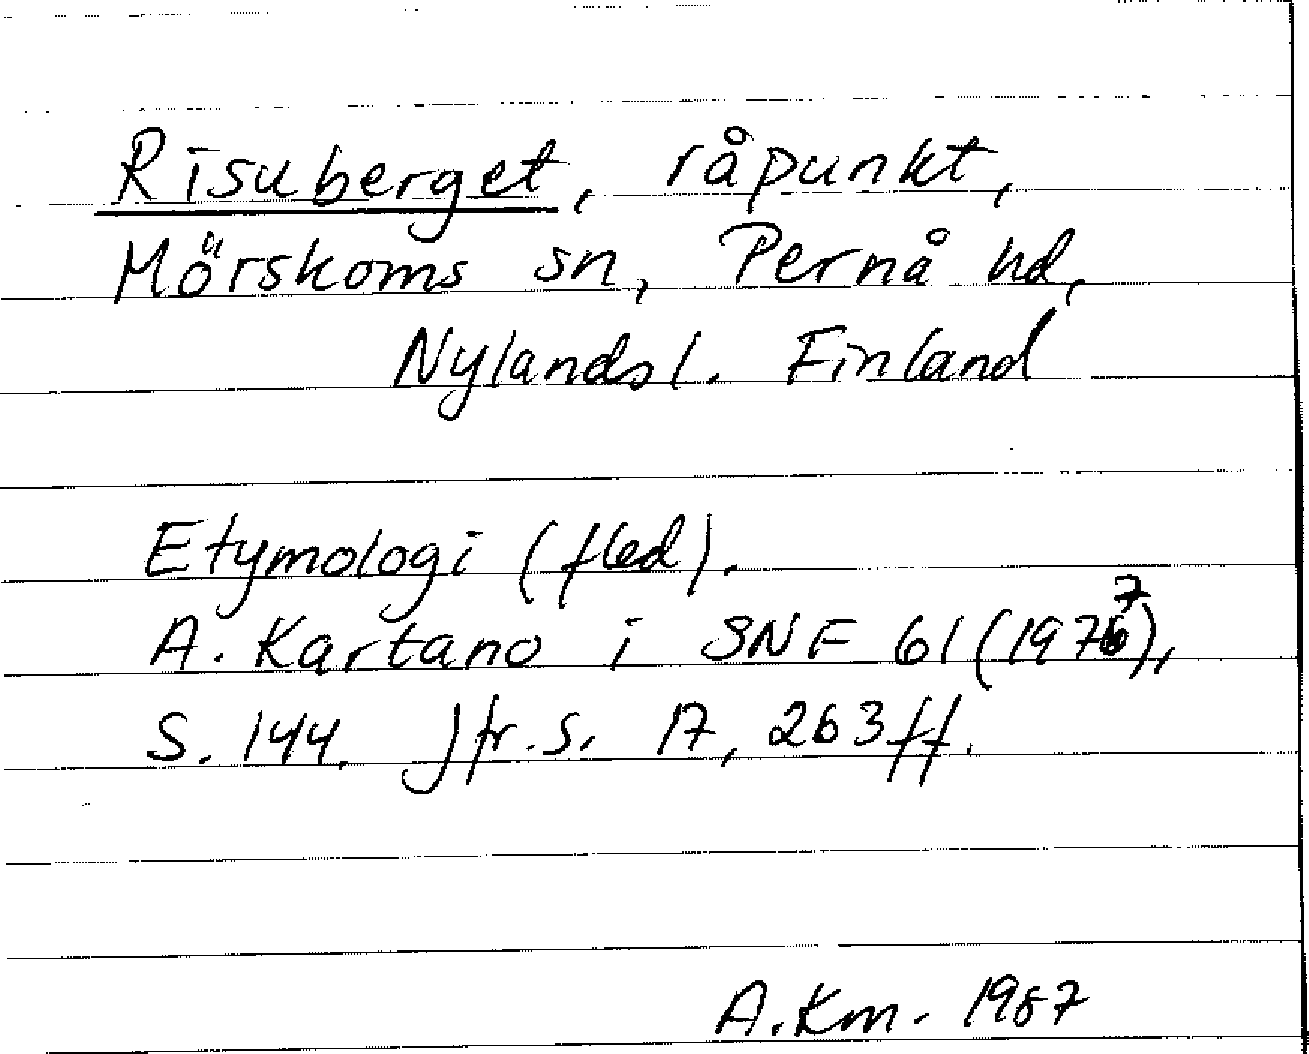 Risuberget, råpunkt,
Mörskoms sn, Pernå hd,
Nylandsl. Finland
Etymologi (fled).
A. Kartano i SNF 61 (1977),
S. 144. Jfr. s. 17, 263 ff.
A. Km. 1987